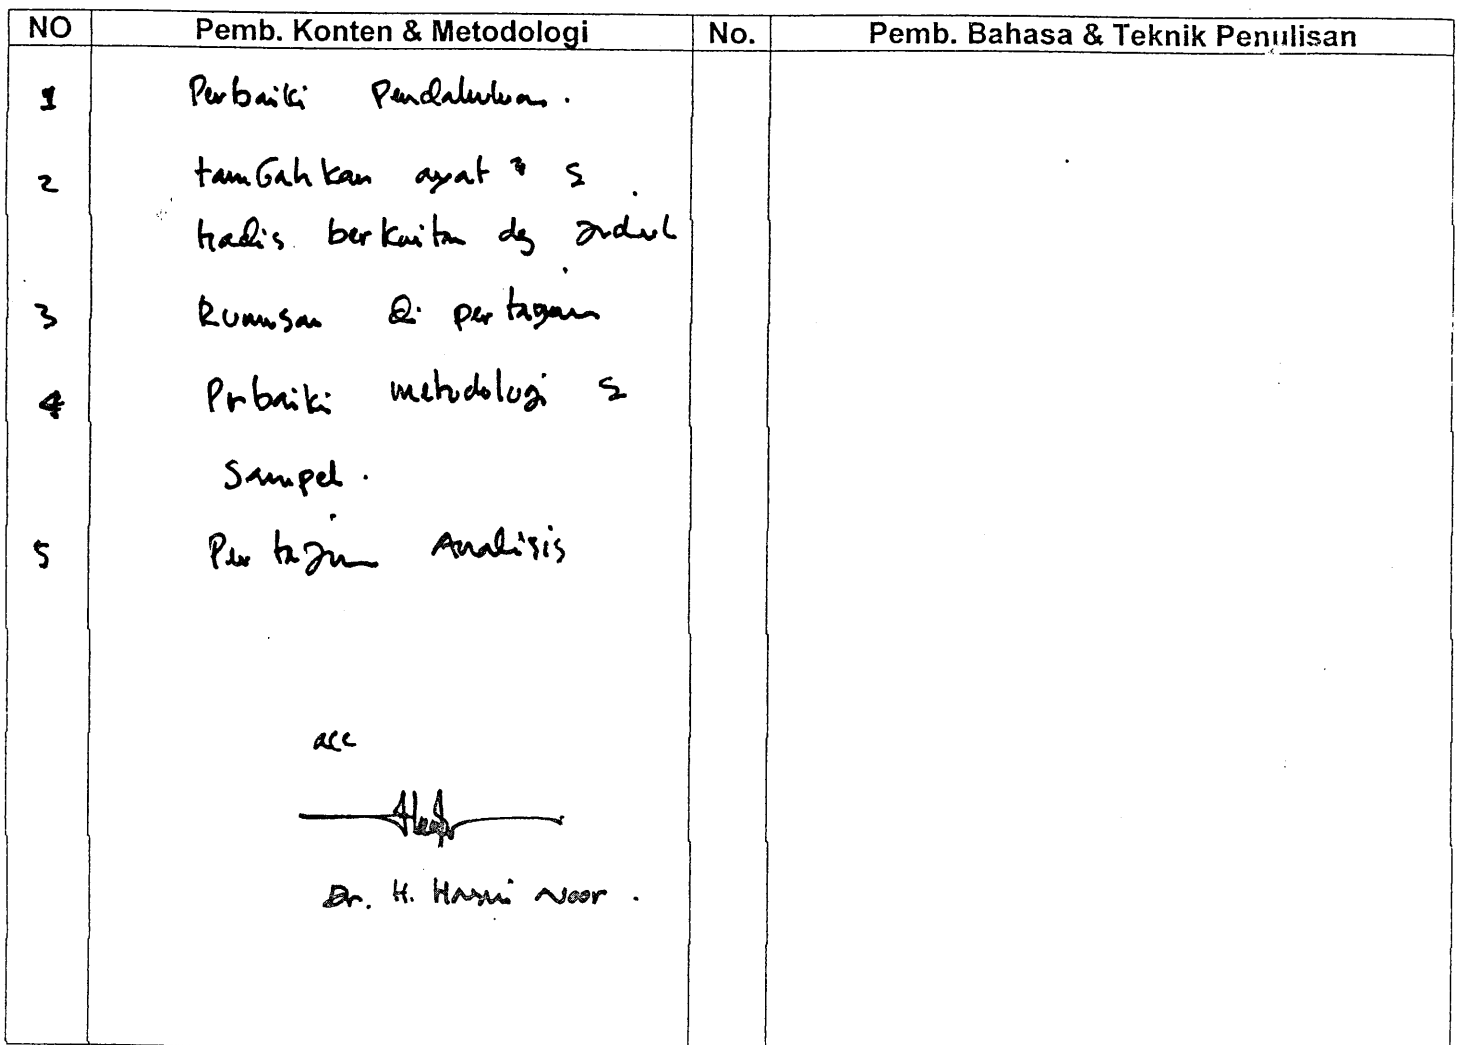 NO Pemb. Konten & Metodologi No. Pemb. Bahasa & Teknik Penulisan
1 Perbaiki Pendahuluan.
2 tambahkan ayat² &
hadis berkaitan dg judul
3 Rumusan di pertajam
4 Perbaiki metodologi &
Sampel.
5 Pertajam Analisis
acc
Dr. H. Hasni Noor.